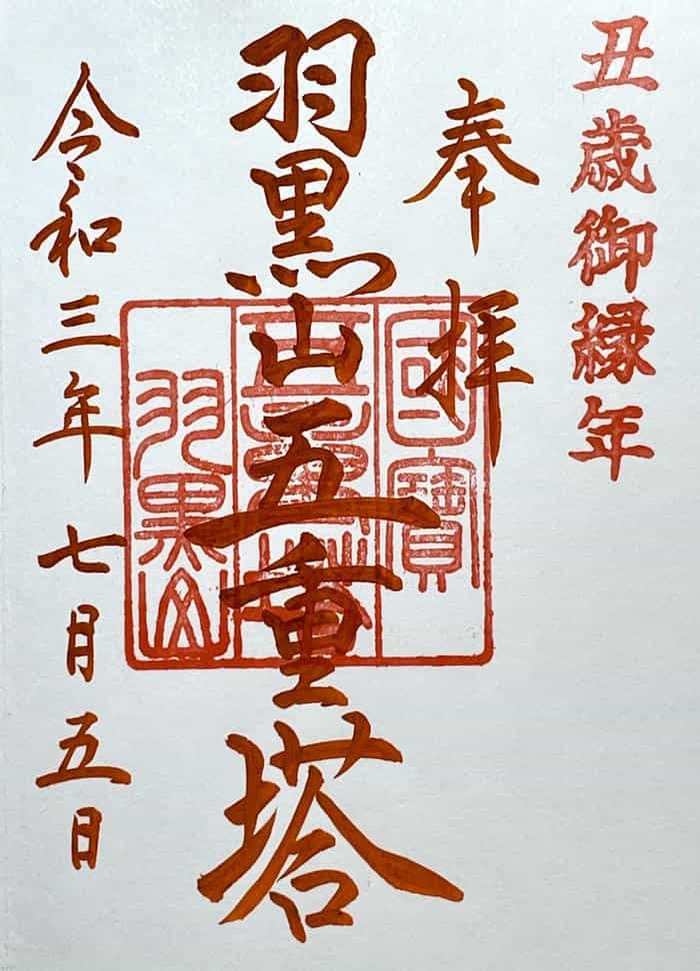 丑歳御縁年
奉拝
羽黒山五重塔
令和三年七月五日
國寶
五重塔
羽黒山